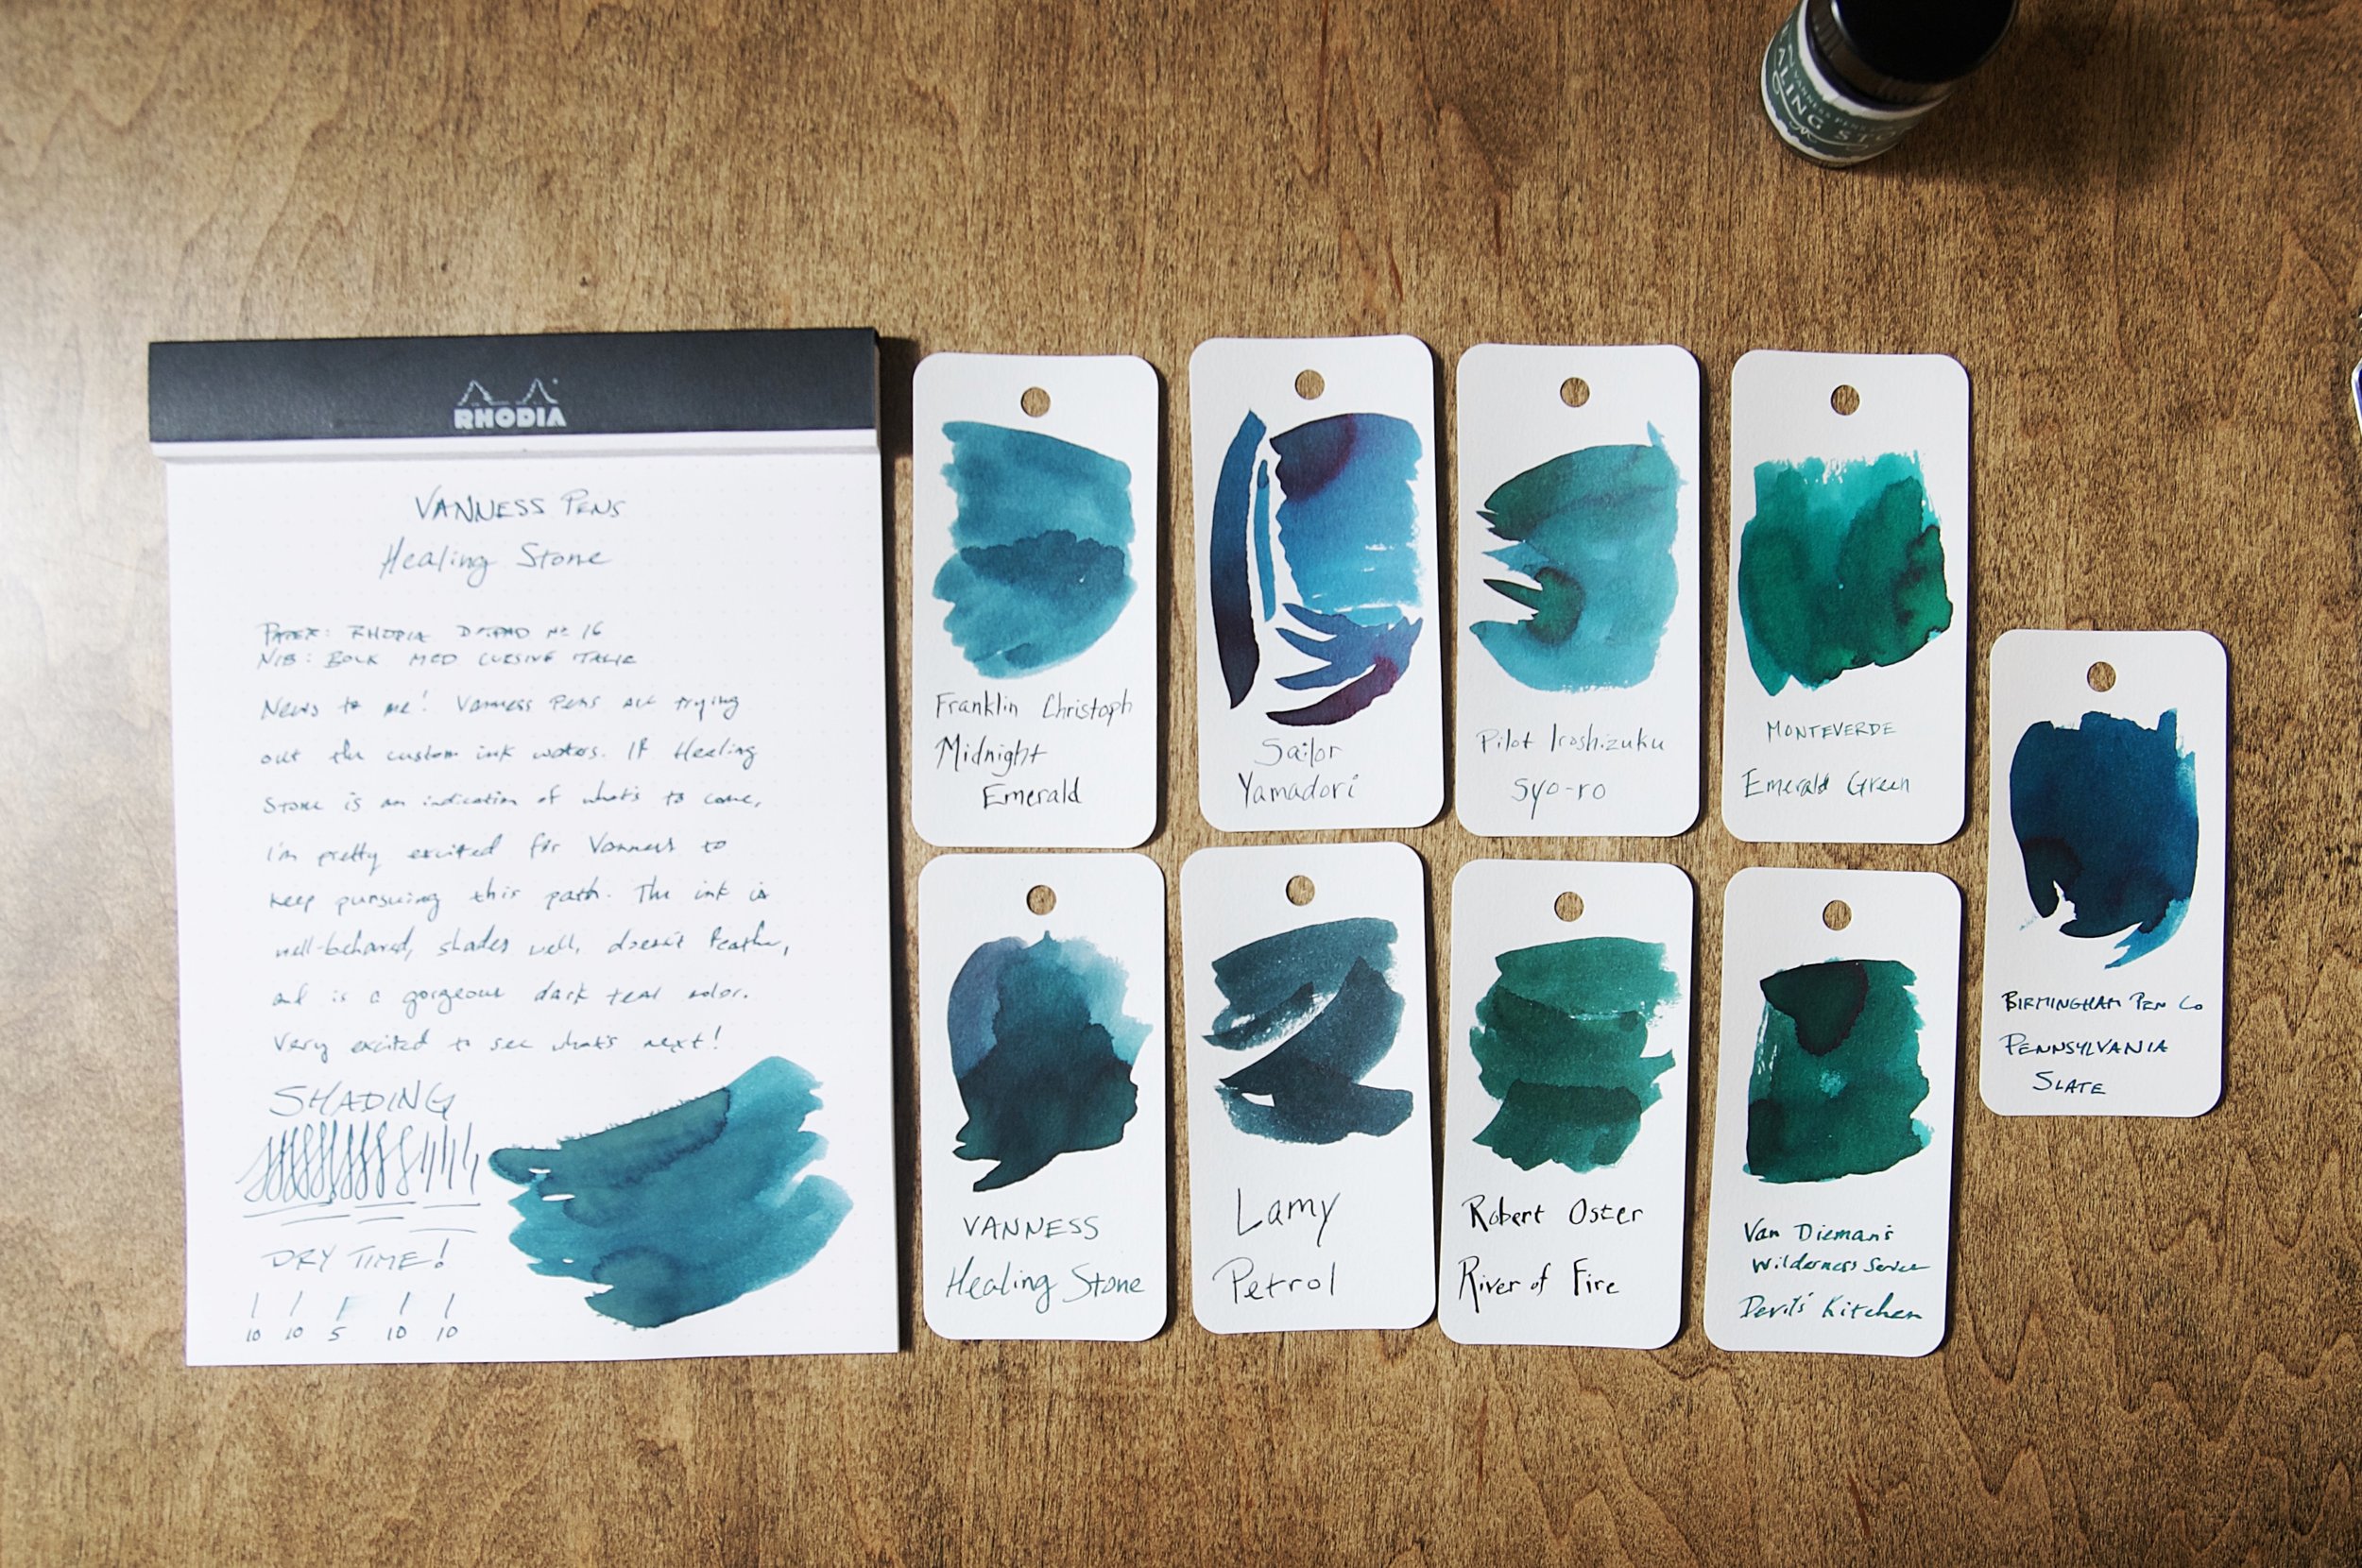 RHODIA
VANNESS PENS
Healing Stone
PAPER: RHODIA DOTPAD No 16
NIB: BOCK MED CURSIVE ITALIC
News to me! Vanness Pens are trying
out the custom ink waters. If Healing
Stone is an indication of what's to come,
I'm pretty excited for Vanness to
keep pursuing this path. The ink is
well-behaved, shades well, doesn't feather,
and is a gorgeous dark teal color.
Very excited to see what's next!
SHADING
DRY TIME!
10 10 5 10 10
Franklin Christoph
Midnight
Emerald
Sailor
Yamadori
Pilot Iroshizuku
Syo-ro
MONTEVERDE
Emerald Green
BIRMINGHAM PEN CO
PENNSYLVANIA
SLATE
VANNESS
Healing Stone
Lamy
Petrol
Robert Oster
River of Fire
Van Dieman's
Wilderness Series
Devil's Kitchen